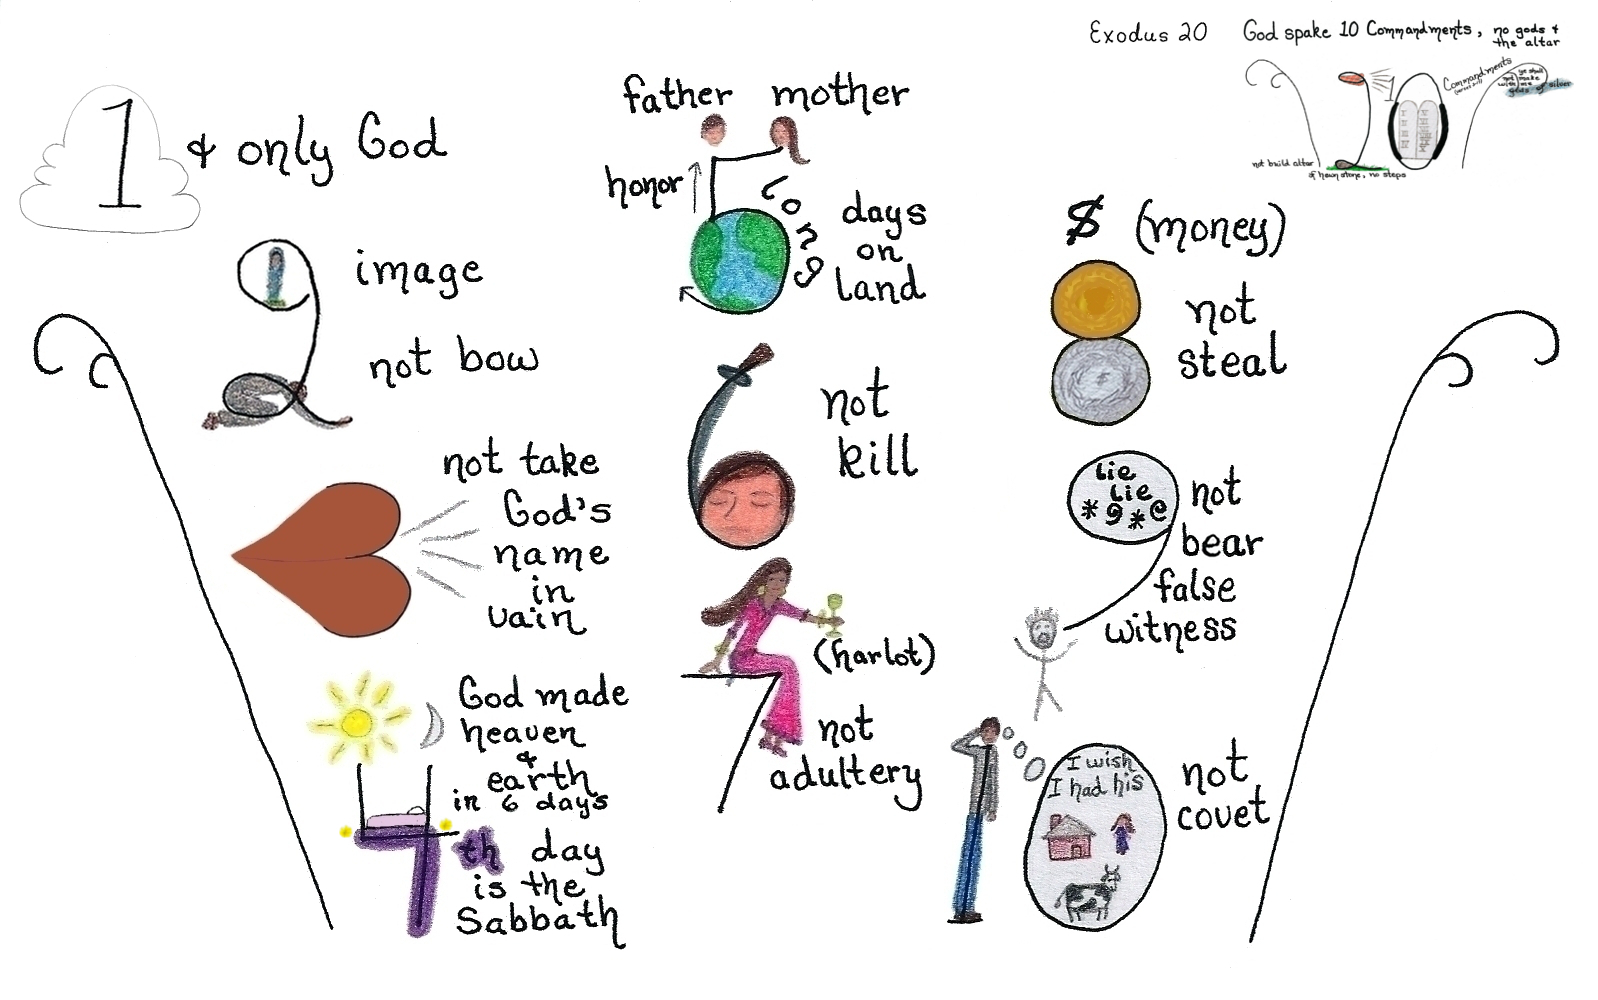 Exodus 20 God spake 10 Commandments, no gods &
the altar
Commandments
ye shall
not make
with me
gods of silver
not build altar
of hewn stone, no steps
1 & only God
image
not bow
not take
God's
name
in
vain
God made
heaven
&
earth
in 6 days
7th day
is the
Sabbath
father mother
honor
long
days
on
land
not
kill
(harlot)
not
adultery
$ (money)
not
steal
Lie
Lie
*9*@
not
bear
false
witness
I wish
I had his
not
covet